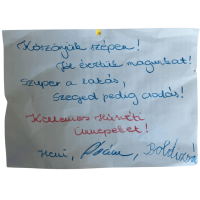 Köszönjük szépen!
Jól éreztük magunkat!
Szuper a lakás,
Szeged pedig csodás!
Kellemes Húsvéti
ünnepeket!
Heni, Ádám, Boldizsár